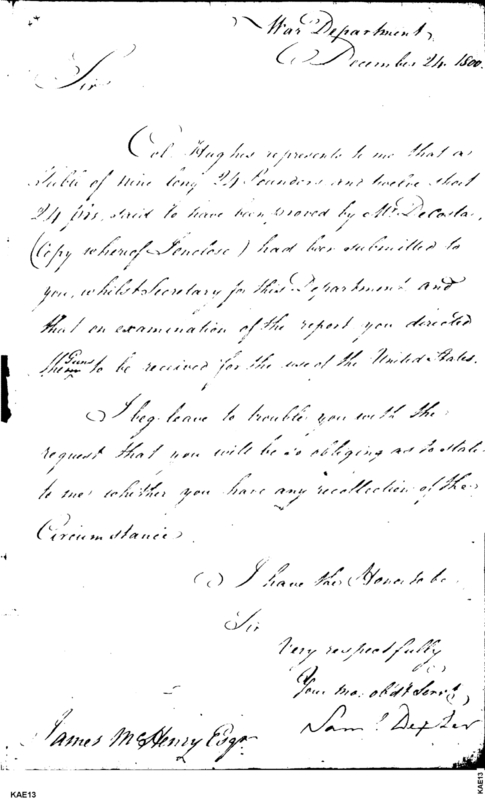 KAE
War Department
December 24. 1800.
Sir
Col. Hughes represents to me that a
Table of nine long 24 Pounders and twelve short
24 prs. said to have been proved by Mr. Decosta,
(Copy whereof I enclose) had been submitted to
you, whilst Secretary for this Department and
that on examination of the report you directed
Guns
them to be received for the use of the United States.
I beg leave to trouble you with the
request that you will be so obliging as to state
to me whether you have any recollection of the
Circumstance.
I have the Honor to be
Sir
Very respectfully
Your mo. obdt Servt.
Saml. Dexter
James McHenry Esqr.
KAE13
KAE13